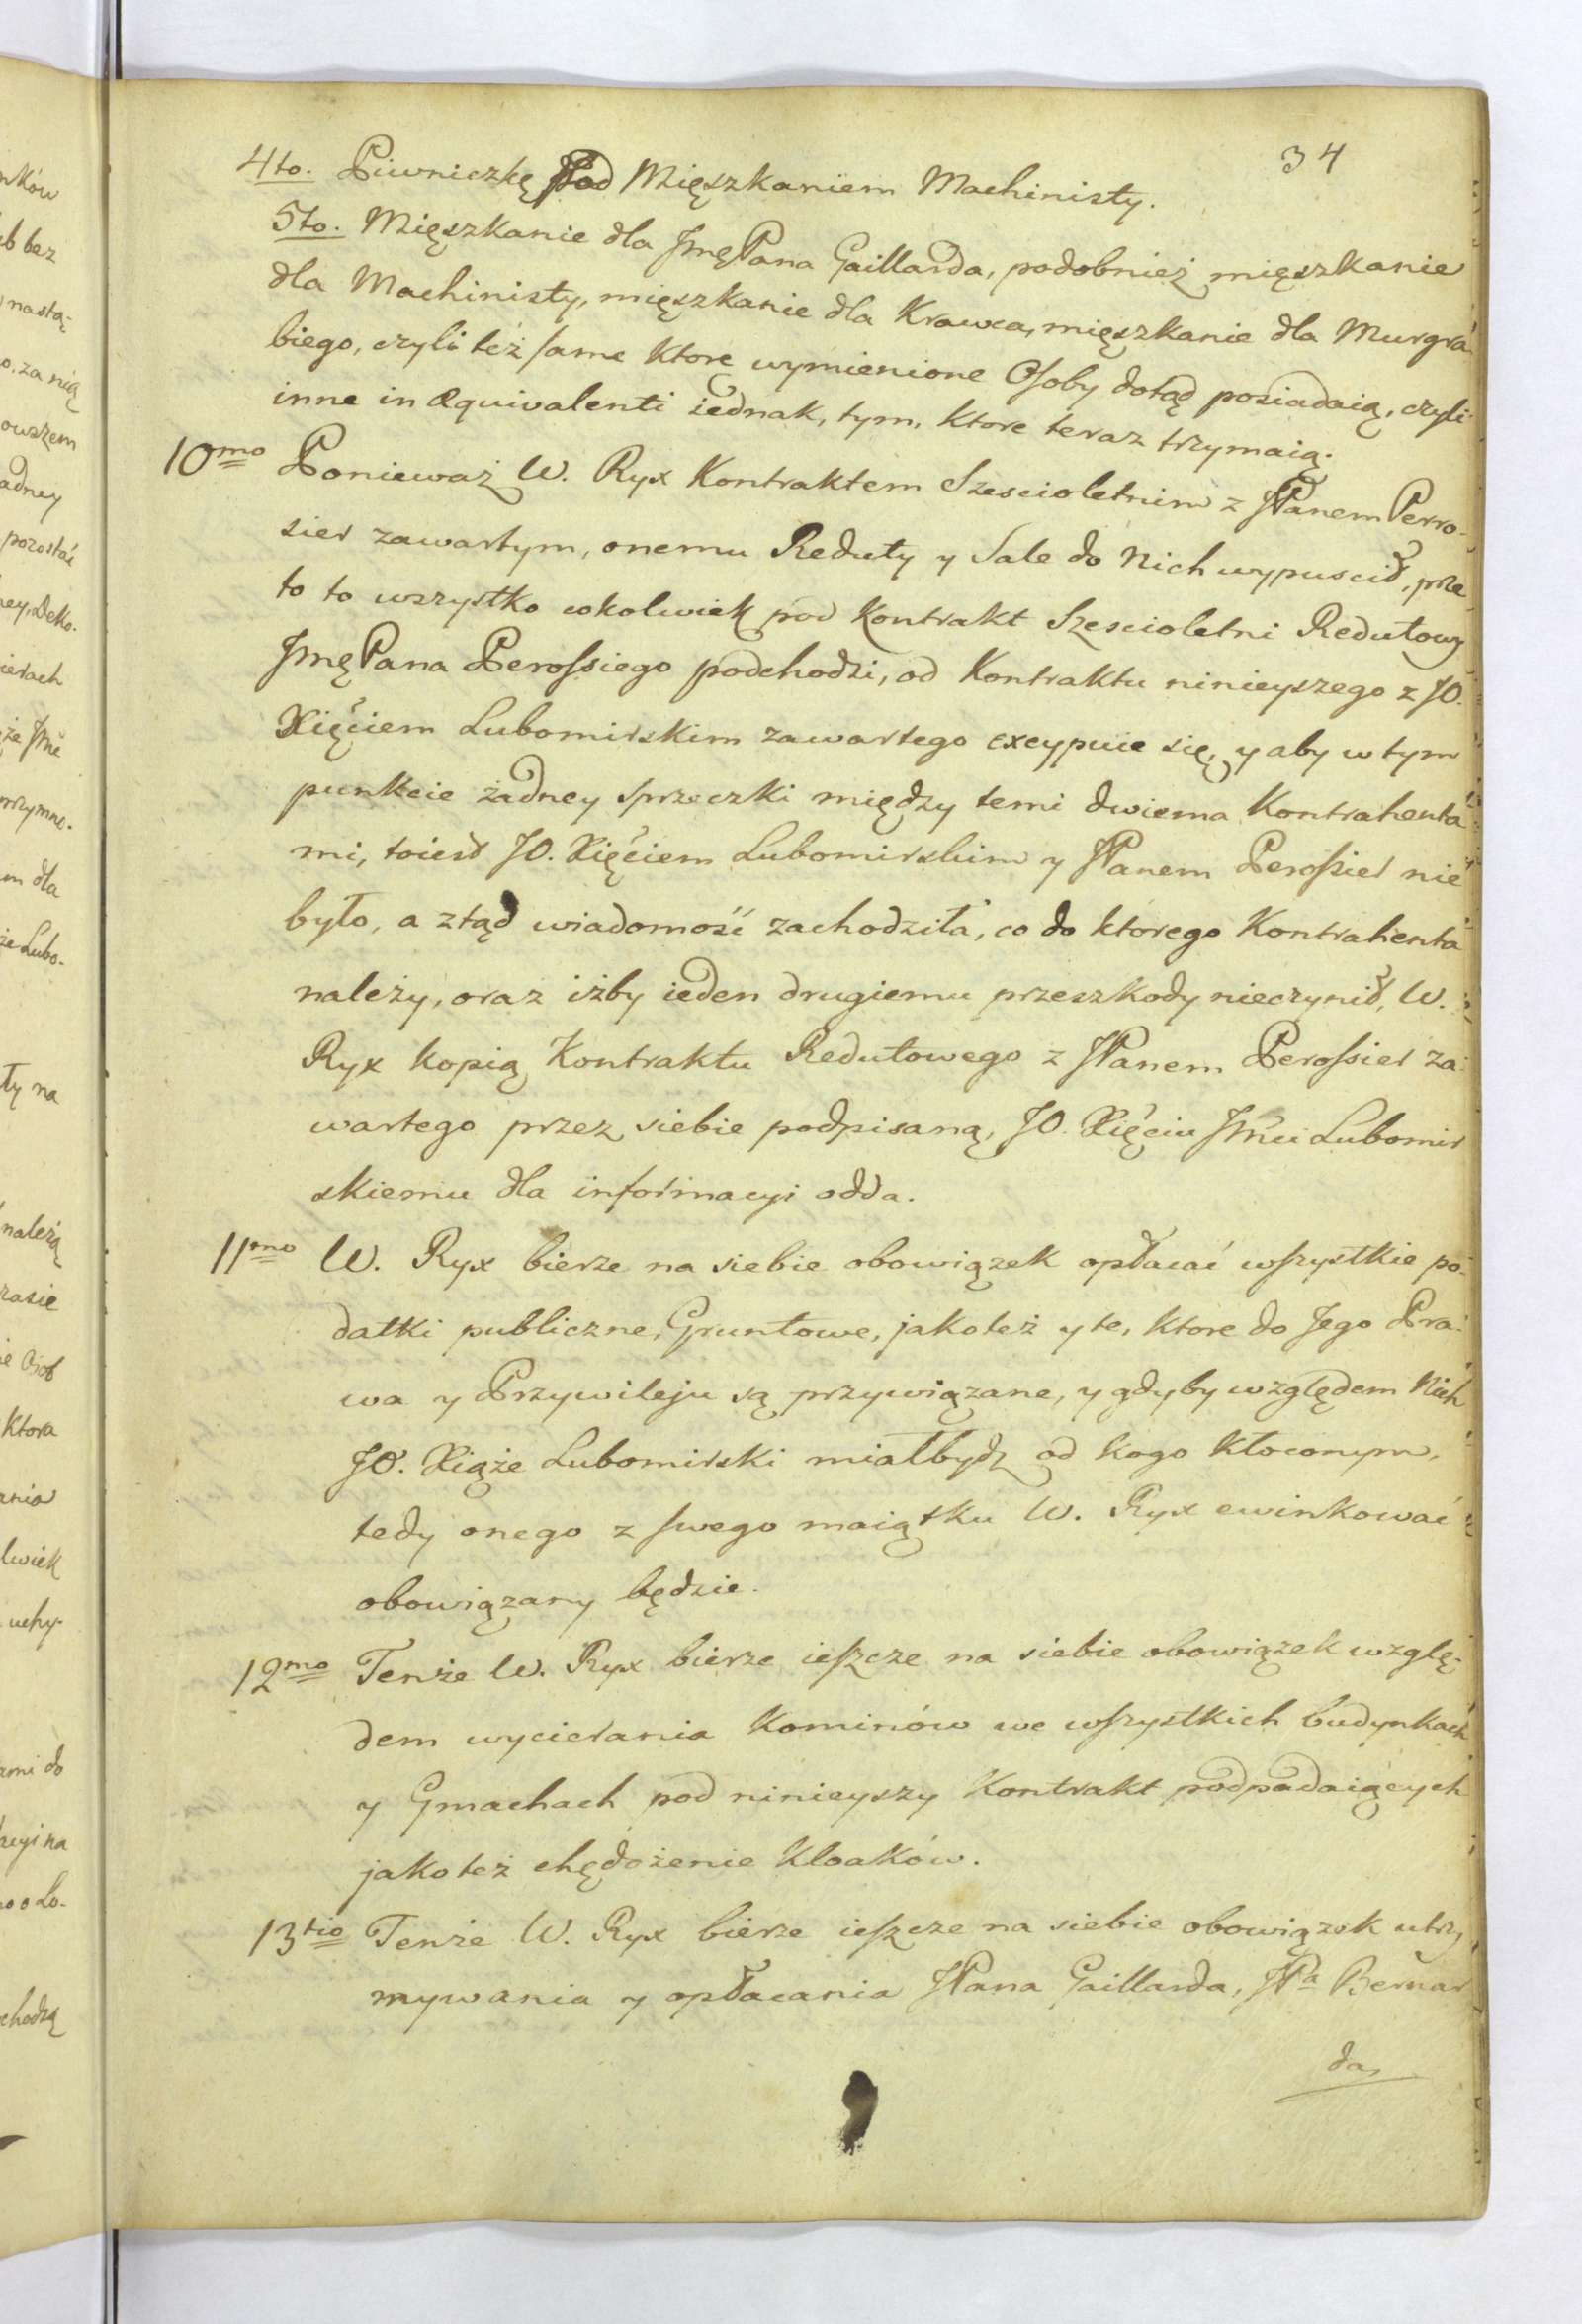 34
4to. Piwniczkę pod Mięszkaniem Machinisty.
5to. Mięszkanie dla JmęPana Gaillarda, podobnież mięszkanie
dla Machinisty, mięszkanie dla Krawca, mięszkanie dla Murgra-
biego, czyli też same ktore wymienione Osoby dotąd posiadaią, czyli
inne in æquivalenti iednak, tym, ktore teraz trzymaią.
10mo Ponieważ W. Ryx Kontraktem Szescioletnim z JPanem Perro-
sier zawartym, onemu Reduty y Sale do Nich wypuscił, prze-
to to wszystko cokolwiek pod Kontrakt Szescioletni Redutowy
JmęPana Perossiego podchodzi, od Kontraktu ninieyszego z JO.
Xięciem Lubomirskim zawartego excypuie się, y aby w tym
punkcie żadney sprzeczki między temi dwiema Kontrahenta-
mi, toiest JO. Xięciem Lubomirskim y JPanem Perossier nie
było, a ztąd wiadomość zachodziła, co do ktorego Kontrahenta
należy, oraz iżby ieden drugiemu przeszkody nieczynił, W.
Ryx kopią Kontraktu Redutowego z JPanem Perossier za-
wartego przez siebie podpisaną, JO. Xięciu Jmci Lubomir
skiemu dla informacyi odda.
11mo W. Ryx bierze na siebie obowiązek opłacać wszystkie po-
datki publiczne, Gruntowe, jakoteż y te, ktore do Jego Pra-
wa y Przywileju są przywiązane, y gdyby względem Nich
JO. Xiąże Lubomirski miałbydz od kogo kłoconym,
tedy onego z swego maiątku W. Ryx ewinkować
obowiązany będzie.
12mo Tenże W. Ryx bierze ieszcze na siebie obowiązek wzglę-
dem wycierania Kominów we wszystkich budynkach
y Gmachach pod ninieyszy Kontrakt podpadaiących
jakoteż chędożenie Kloaków.
13tio Tenże W. Ryx bierze ieszcze na siebie obowiązek utrzy
mywania y opłacania JPana Gaillarda, JPa Bernar
da,